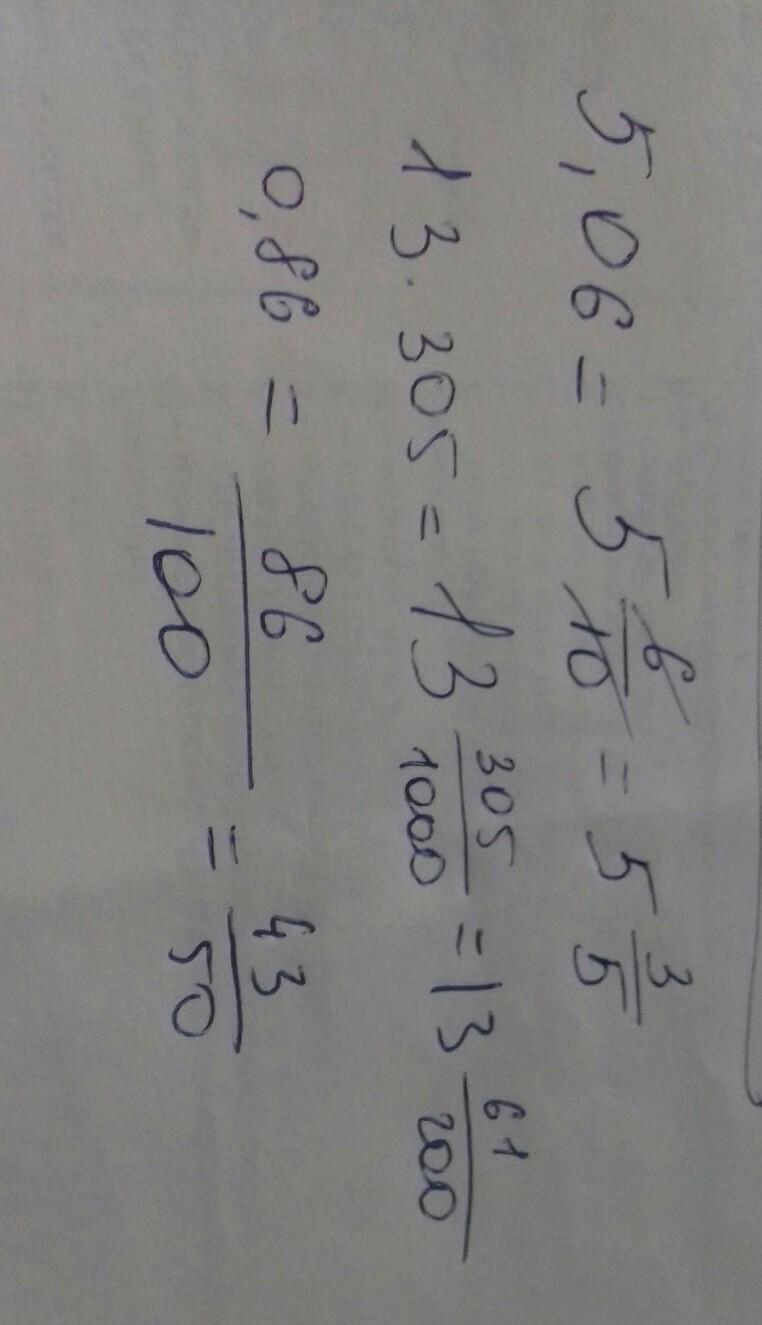 5,06 = 5 6/10 = 5 3/5
13.305 = 13 305/1000 = 13 61/200
0,86 = 86/100 = 43/50